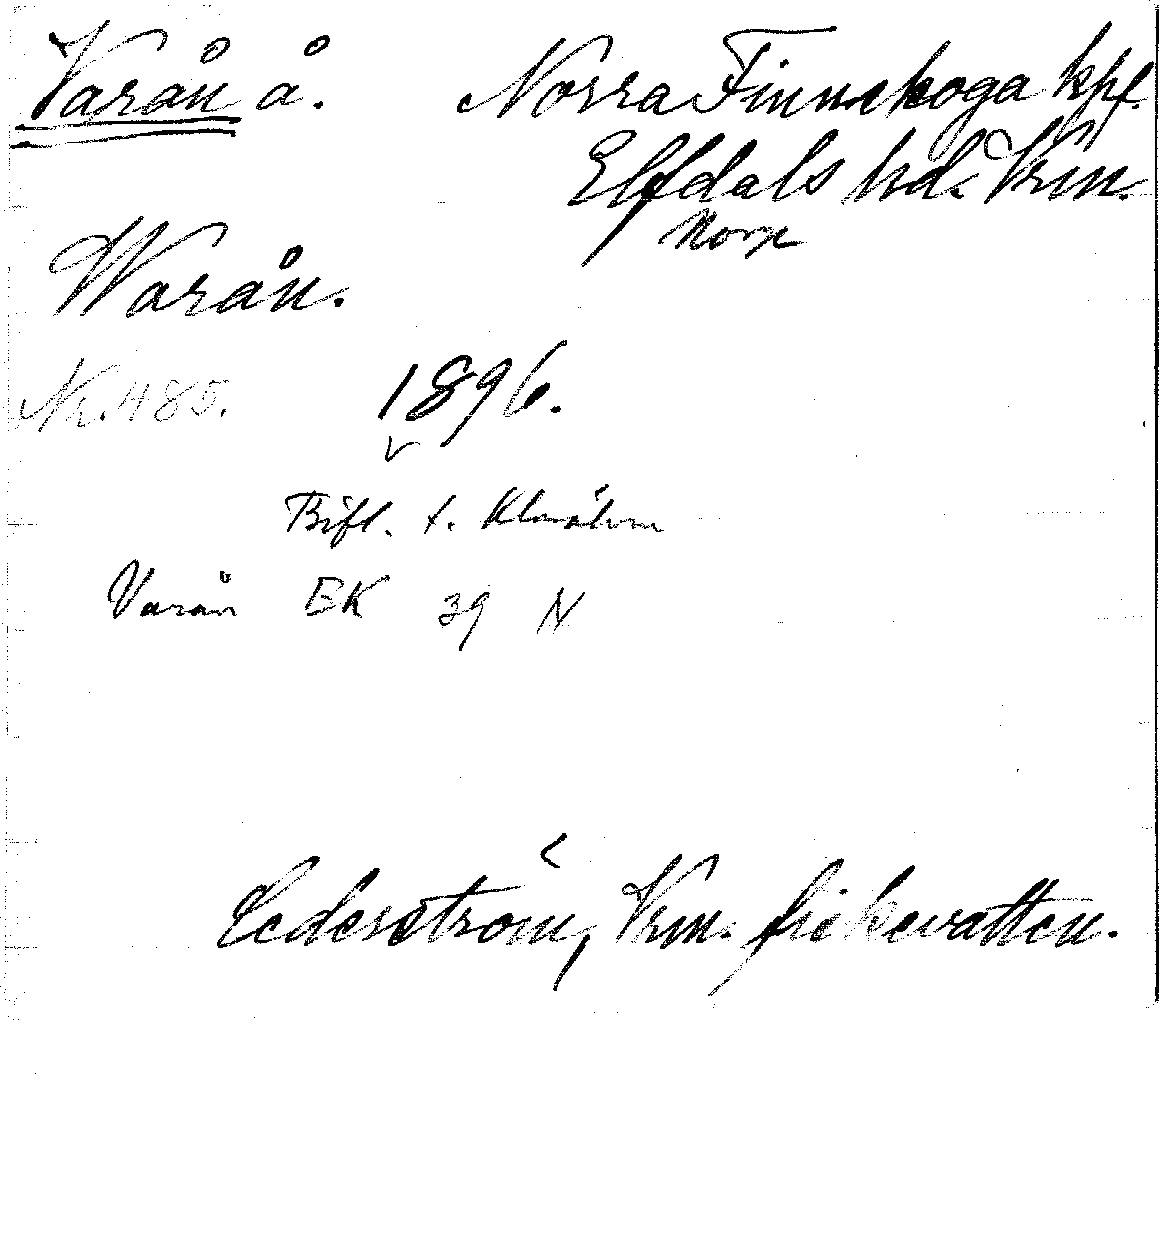 Varån å. Norra Finnskoga kpf.
Elfdals hd. Vrm.
Norge
Warån.
Nr. 485. 1896.
Bifl. t. Klarälven
Varån EK 39 N
Cederström, Vrm. fiskevatten.